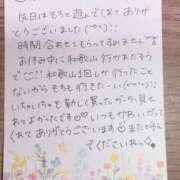 昨日はもちと遊んでくれて ありが
とうございました(´˘`♡)
時間 合わせてもらってすみません
お休み中に 和歌山 行かれたそう
で♡!! 和歌山1回しか 行ったこと
ないからもち も行きたーい(´˘`♡)
いちゃいちゃも 新しく買ったガーター見せ
れてよかったです♡ いつも かわいがっ
てくれて ありがとうございます♡ また仲良
くしてくださいね♡